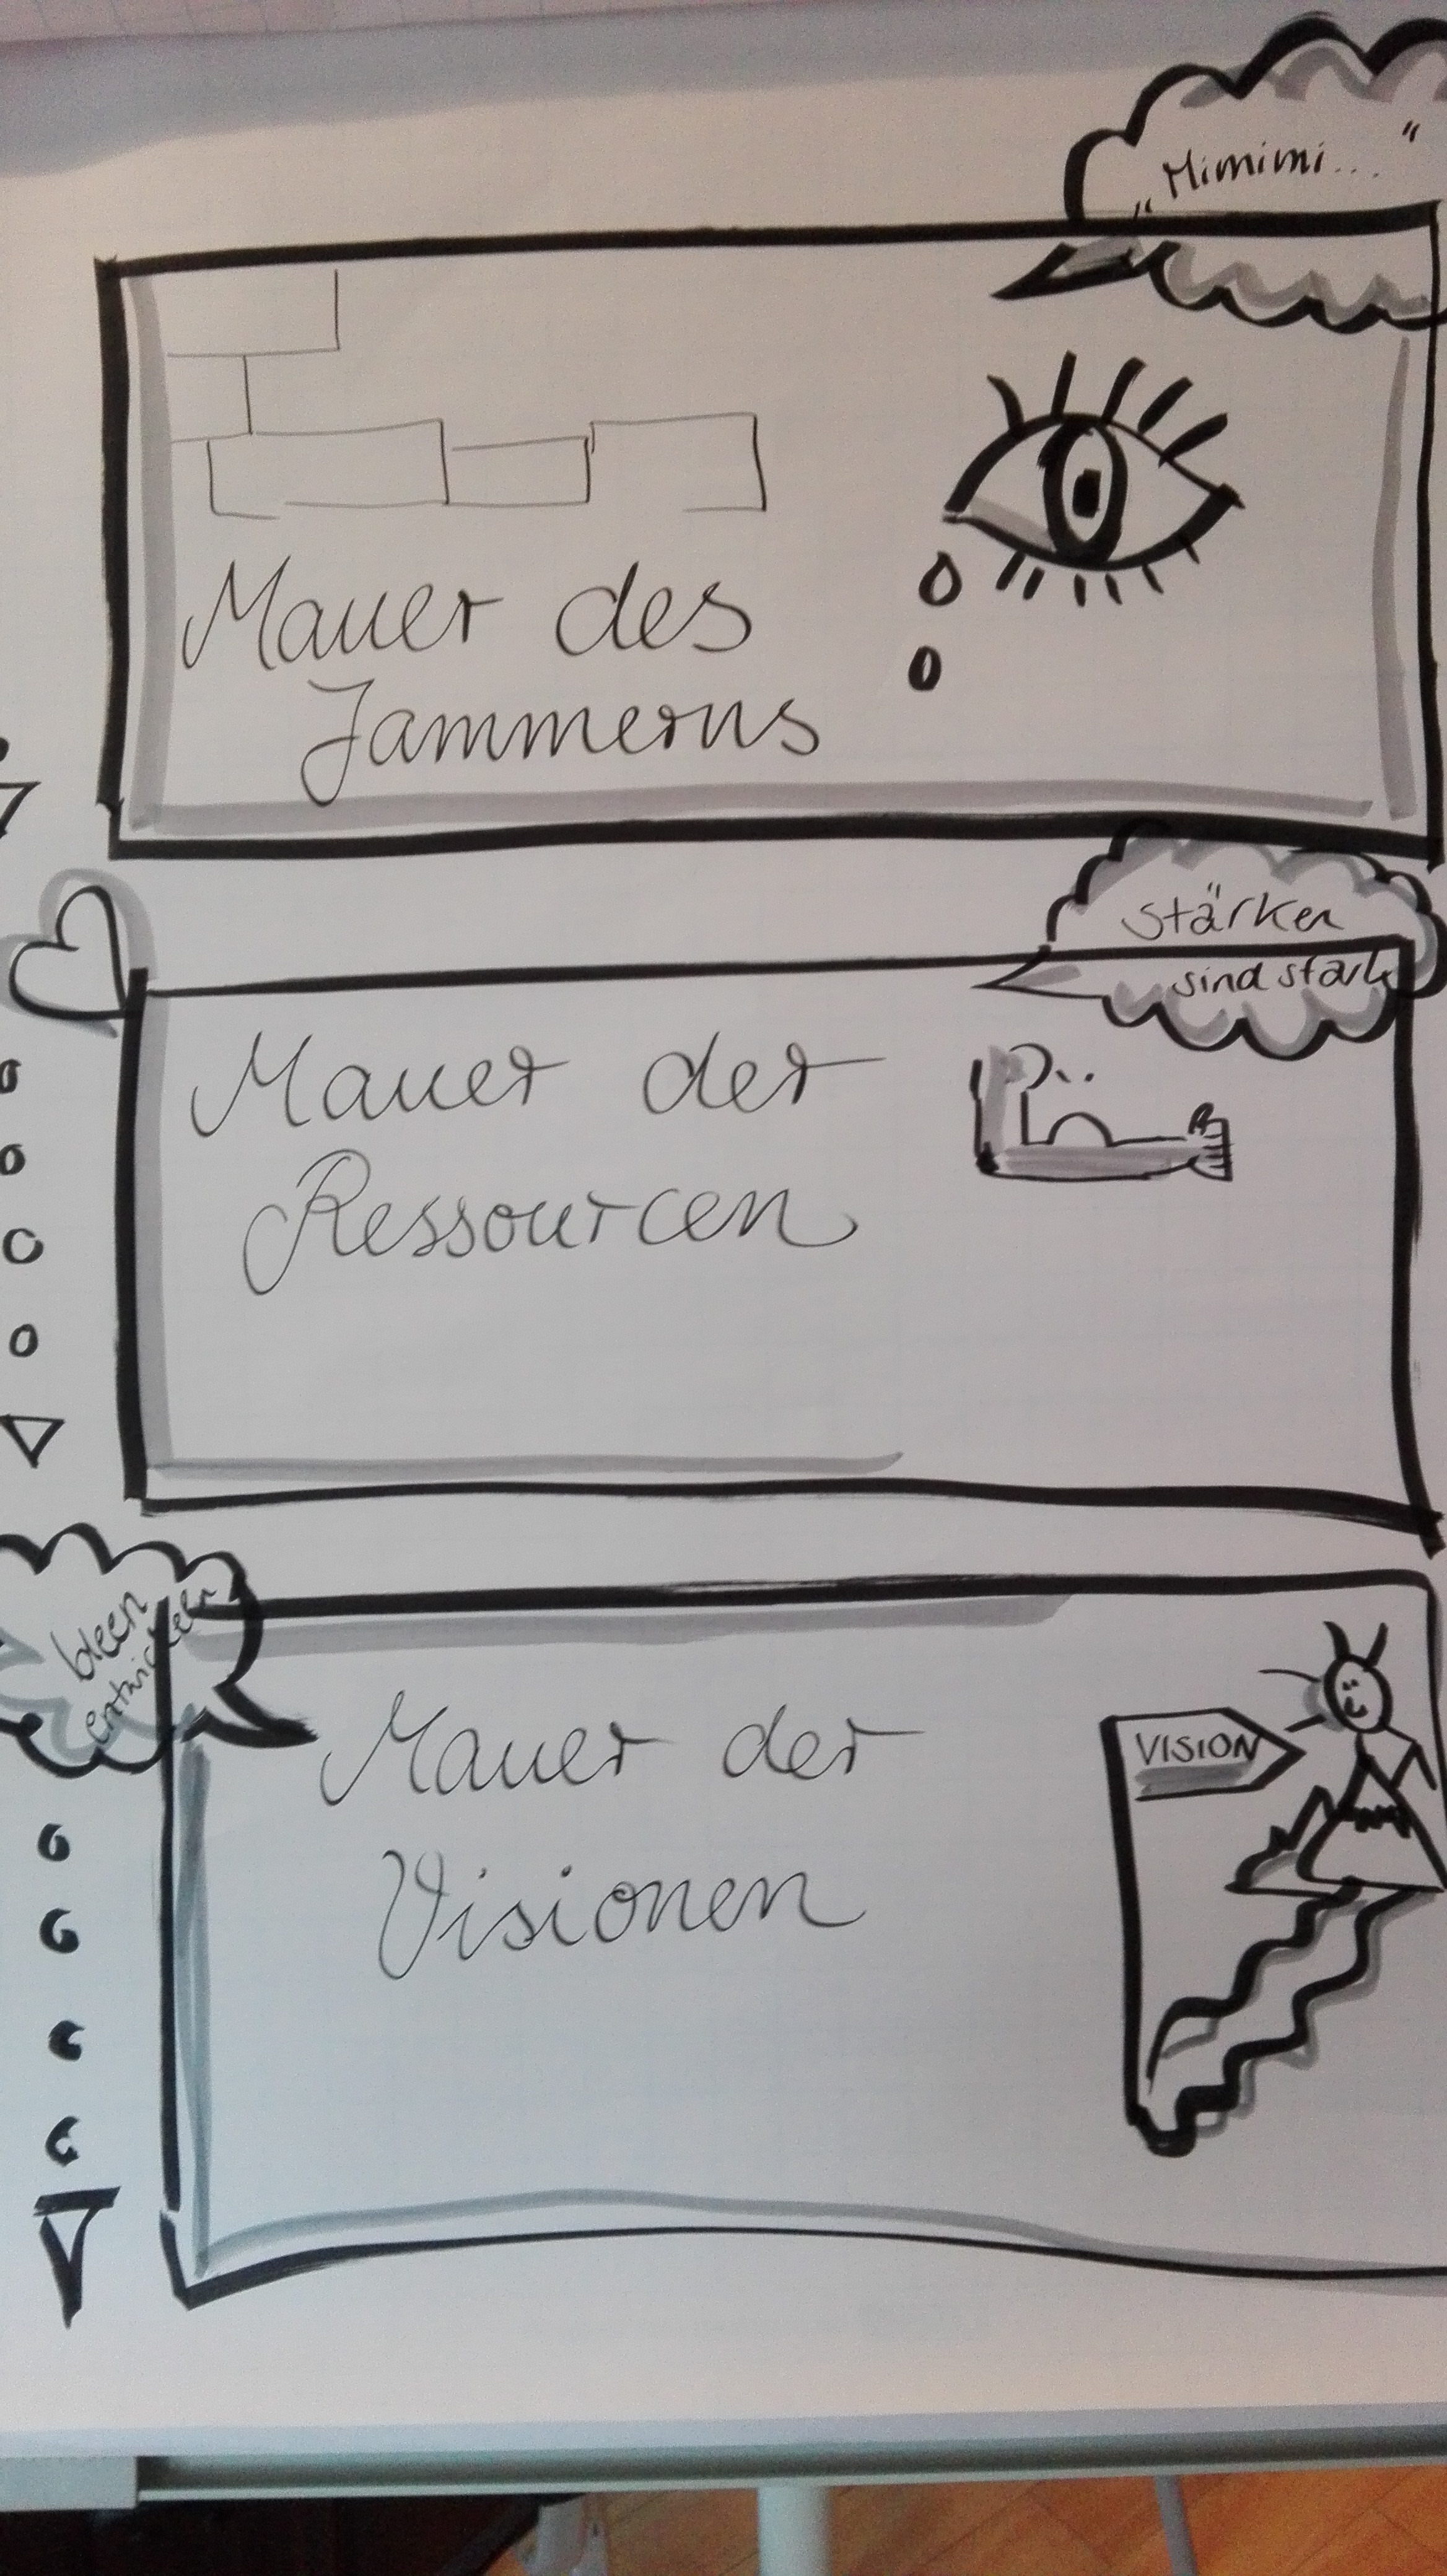 „Mimimi..."
Mauer des
Jammerns
Stärken
sind stark
Mauer der
Ressourcen
Ideen
entwickeln
Mauer der
Visionen
VISION